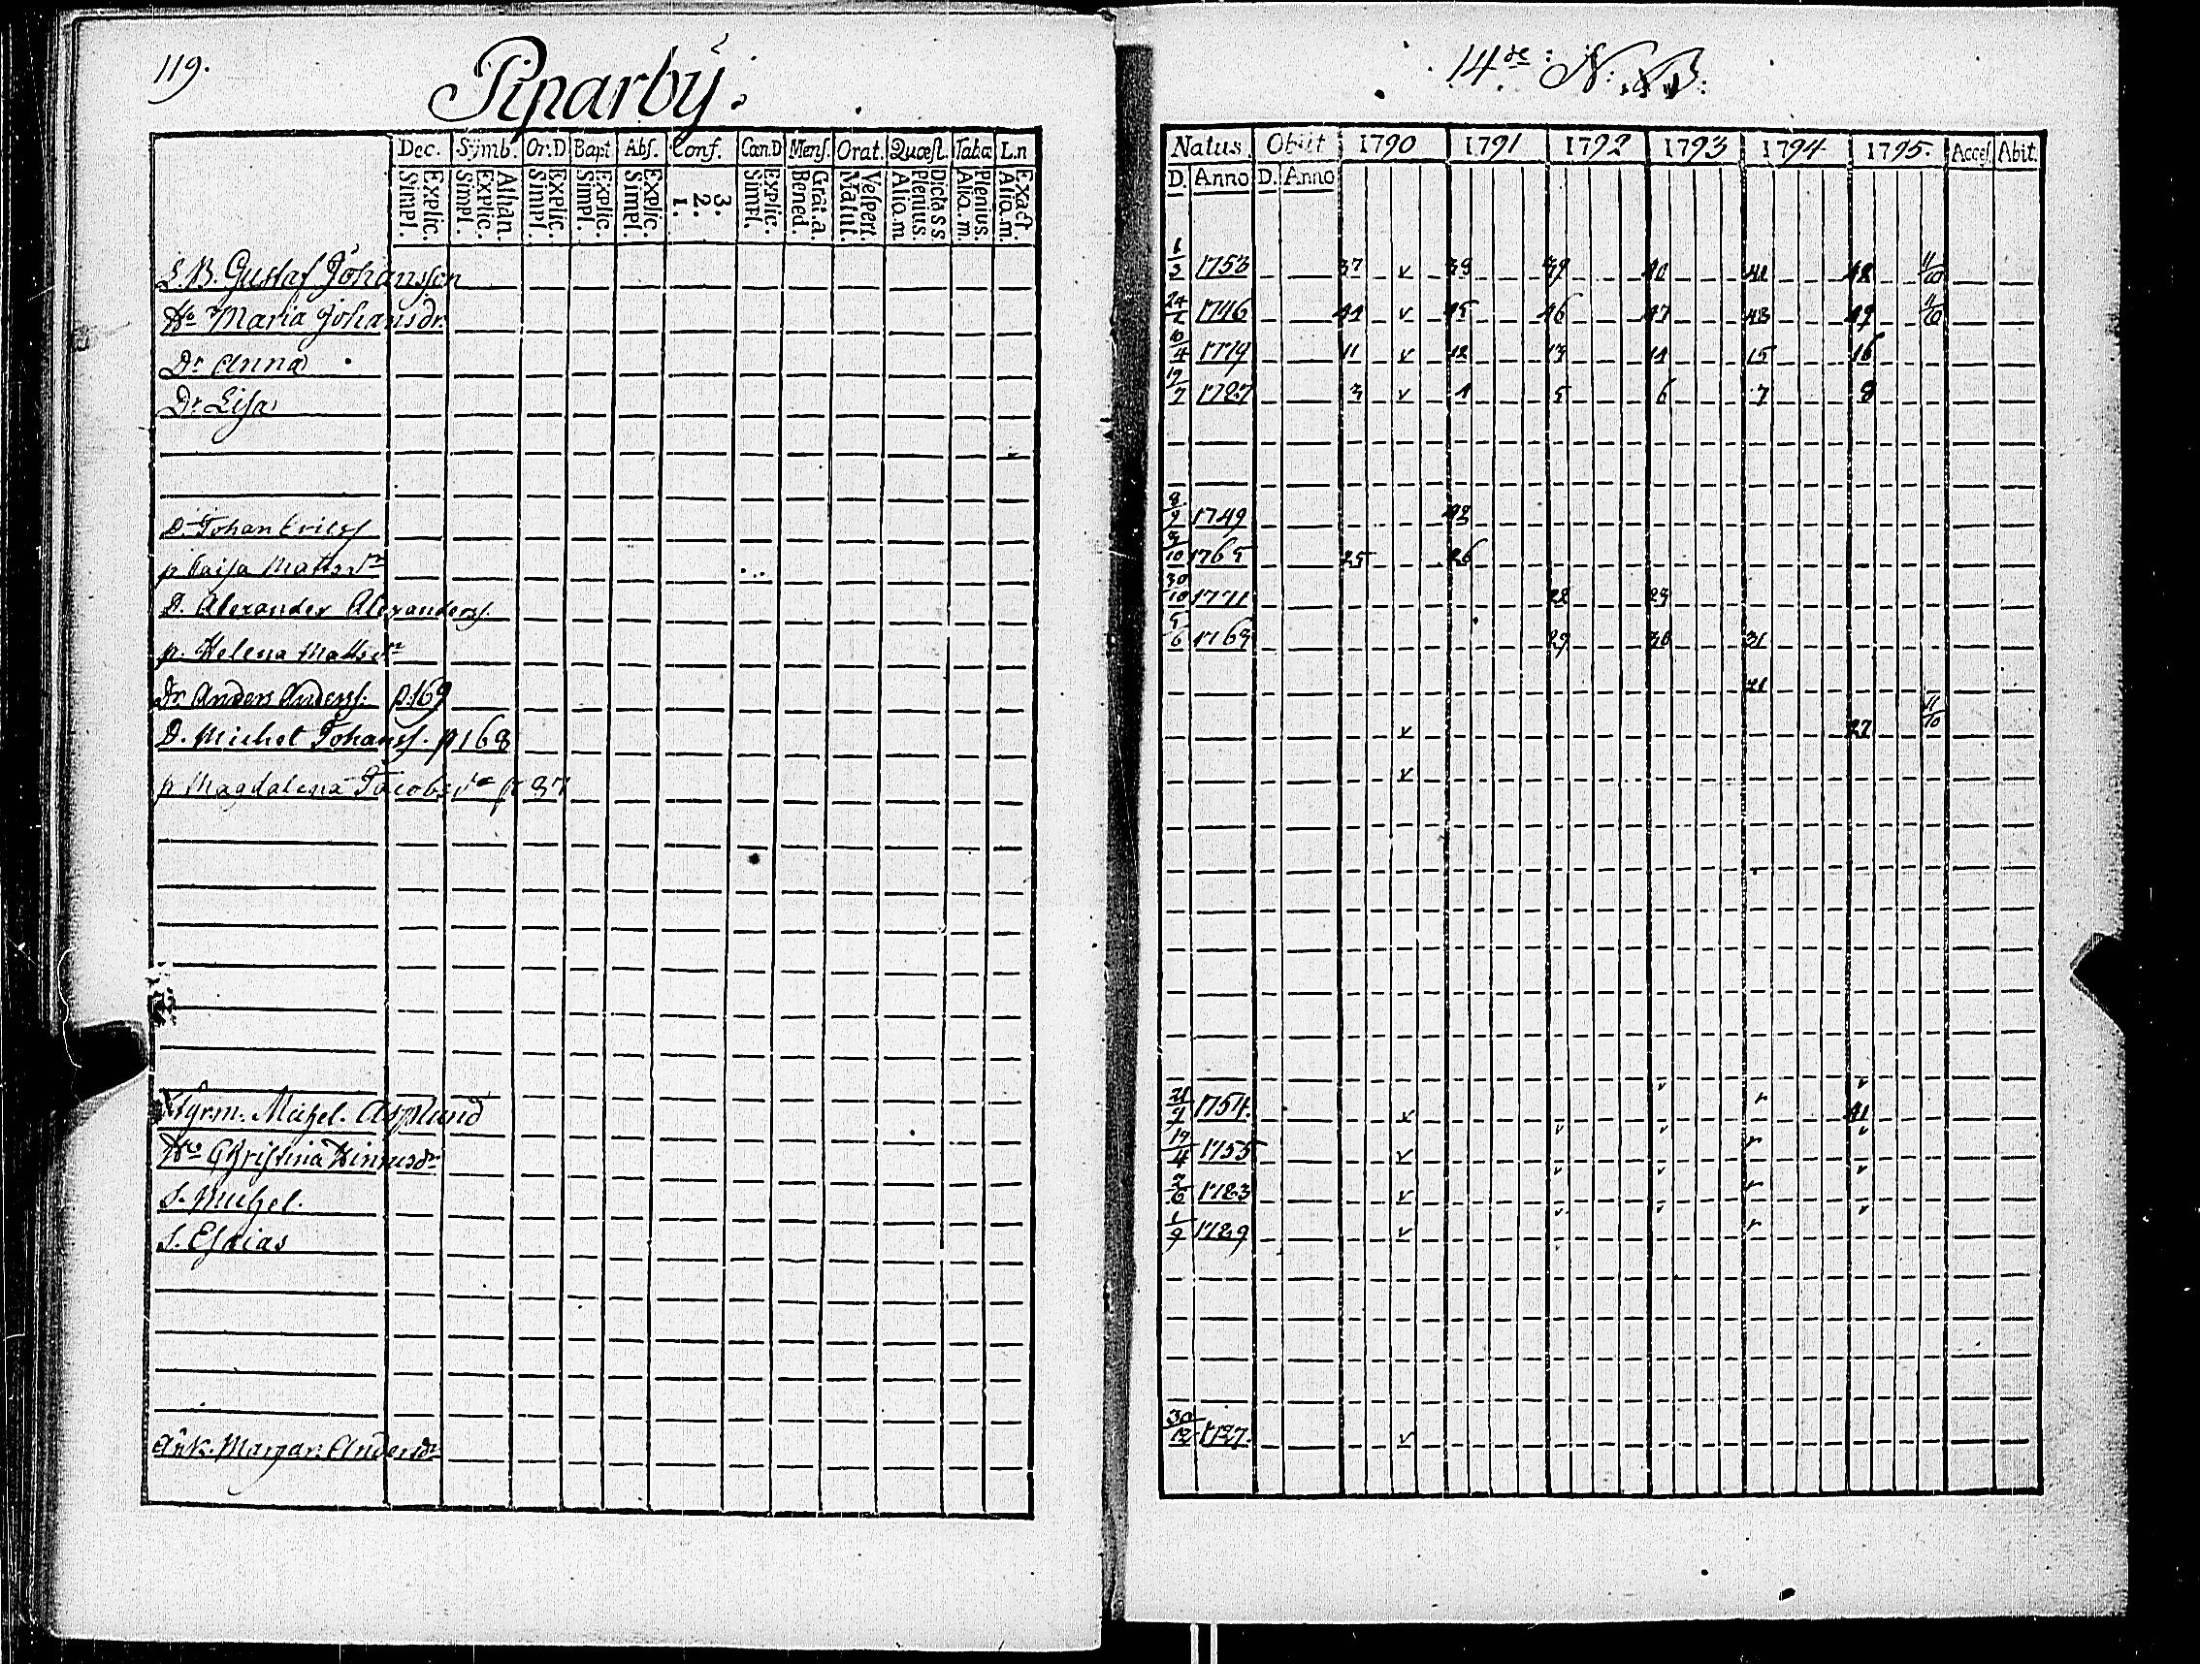 119.
Piparby.
Dec. Symb. Or.D Bapt. Abs. Conf. Cœn.D Mens. Orat. Quæst. Tab.œ L.n
Explic. Simpl. Athan. Explic. Simpl. Explic. Simpl. Explic. Simpl. Explic. Simpl. 3. 2. 1. Explic. Simpl. Grat. a. Bened. Vespert. Matut. Dicta S S. Plenius. Aliq. m. Plenius. Aliq. m. Exact. Aliq. m.
S. B. Gustaf Johansson
Ho Maria Johansdr.
Dr Anna
Dr Lisa
D. Johan Ericss
p. Caisa Mattsdr
D. Alexander Alexanderss.
p. Helena Mattsdr
Dr. Anders Anderss. p.169
D. Michel Johanss. p 168
p Magdalena Jacobsdr p 87
Styrm. Michel Asplund
Ho Christina Hinricsdr
S. Michel.
S. Esaias
Änk. Margar. Andersdr
14de: N. B:
Natus. Obiit 1790 1791 1792 1793 1794 1795. Acces. Abit.
D. Anno D. Anno
1/2 1753 37 v 38 39 40 41 42 11/10
24/5 1746 44 v 45 46 47 48 49 11/10
10/4 1779 11 v 12 13 14 15 16
19/7 1787 3 v 4 5 6 7 8
8/9 1749 42
5/10 1765 25 26
30/10 1771 22 23
5/6 1763 29 30 31
21
v 27 11/10
v
21/9 1754. v v v v 41
19/4 1755 v v v v v
2/6 1783 v v v v v
1/9 1789 v v v v v
30/12 1727. v